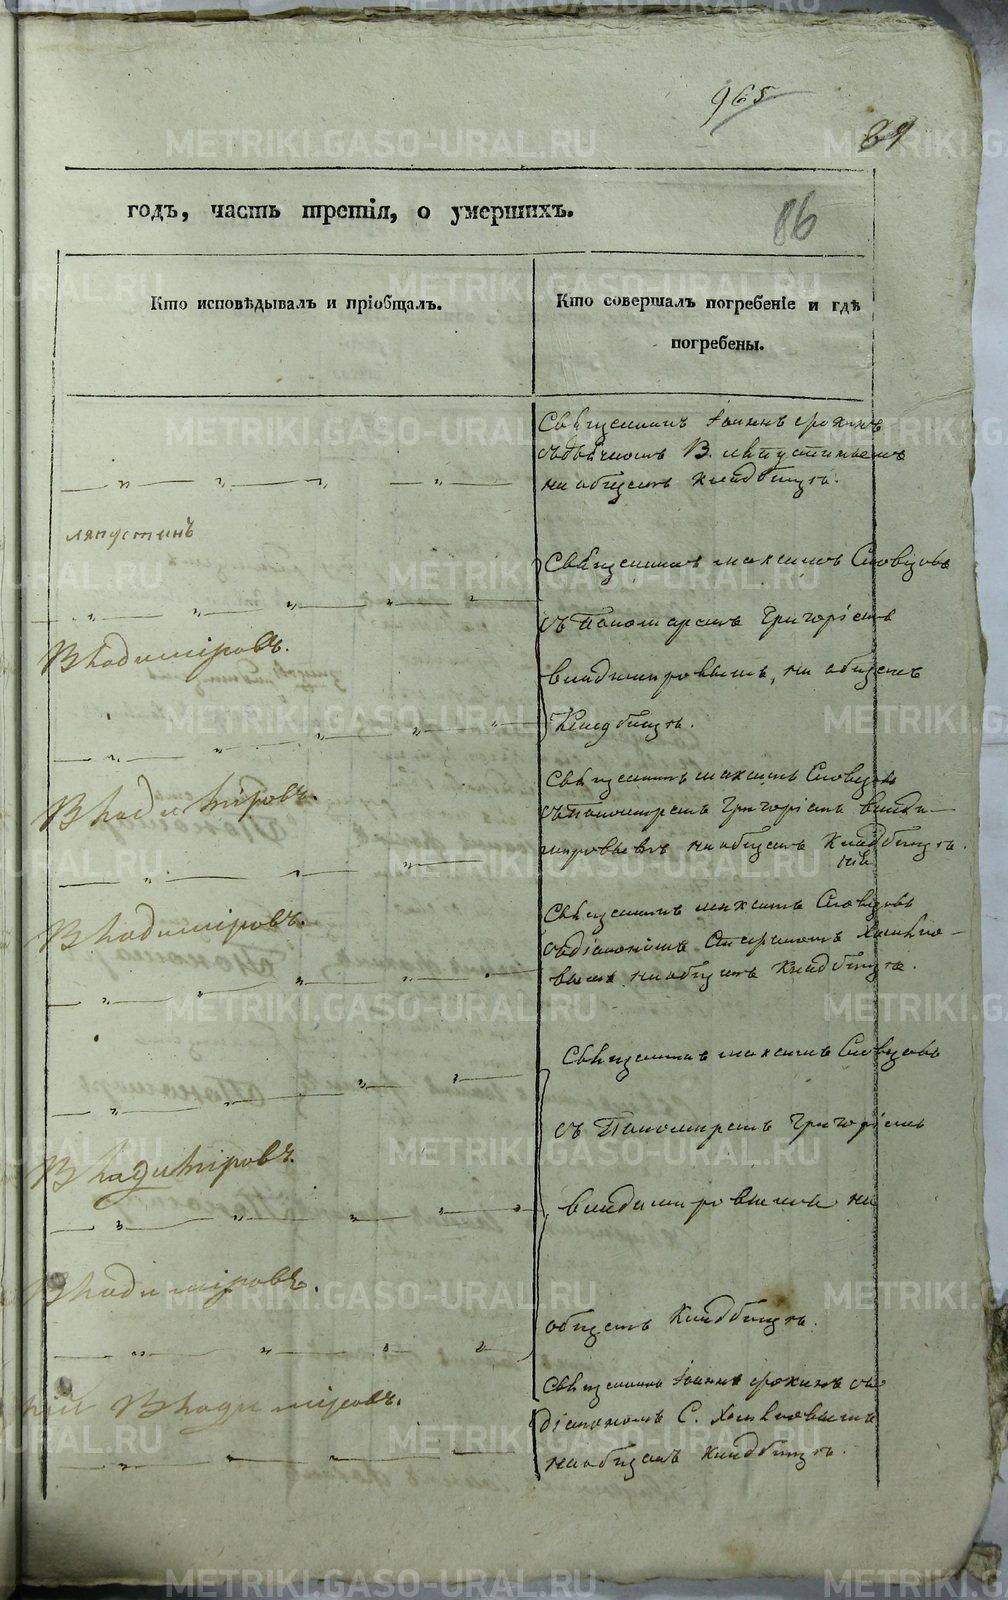 965
89
86
годъ, часть третія, о умершихъ.
Кто исповѣдывалъ и пріобщалъ.
Кто совершалъ погребеніе и гдѣ
погребены.
Священникъ Іоаннъ
съ дьячкомъ В. Ляпустинымъ
на общемъ кладбищѣ.
ляпустинъ
Священникъ Максимъ Словцовъ
съ Пономаремъ Григоріемъ
Владиміровъ.
Владимировымъ, на общемъ
Кладбищѣ.
Священникъ Максимъ Словцовъ
съ Пономаремъ Григоріемъ Влади-
Владиміровъ.
мировымъ на общемъ Кладбищѣ.
Священникъ Максимъ Словцовъ
Владиміровъ.
съ діакономъ
вымъ на общемъ Кладбищѣ.
Священникъ Максимъ Словцовъ
съ Пономаремъ Григоріемъ
Владиміровъ.
Владимировымъ на
Владиміровъ.
общемъ Кладбищѣ.
Священникъ Іоаннъ съ
Владиміровъ.
діакономъ С.
на общемъ Кладбищѣ.
METRIKI.GASO-URAL.RU